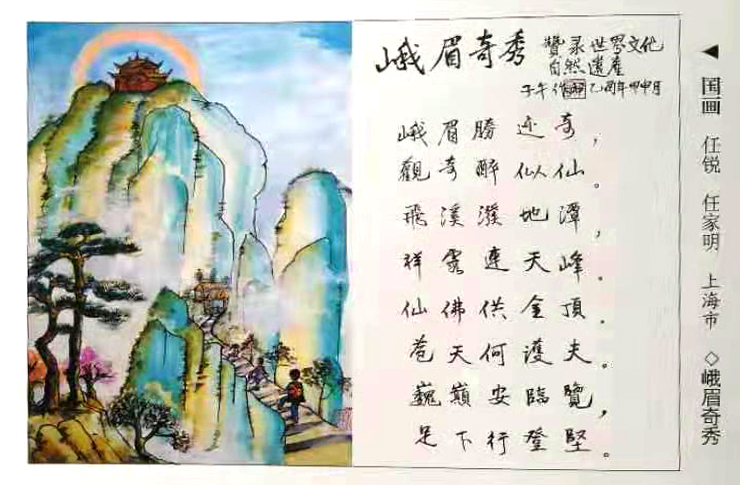 峨眉奇秀 贊录世界文化
自然遺產
子午作 乙酉年甲申月
峨眉勝迹奇,
觀奇醉似仙。
飛溪潑地潭,
祥 連天峰。
仙佛供金頂。
苍天何護夫。
巍巔安臨覽,
足下行登堅。
◀国画 任锐 任家明 上海市 ◇峨眉奇秀